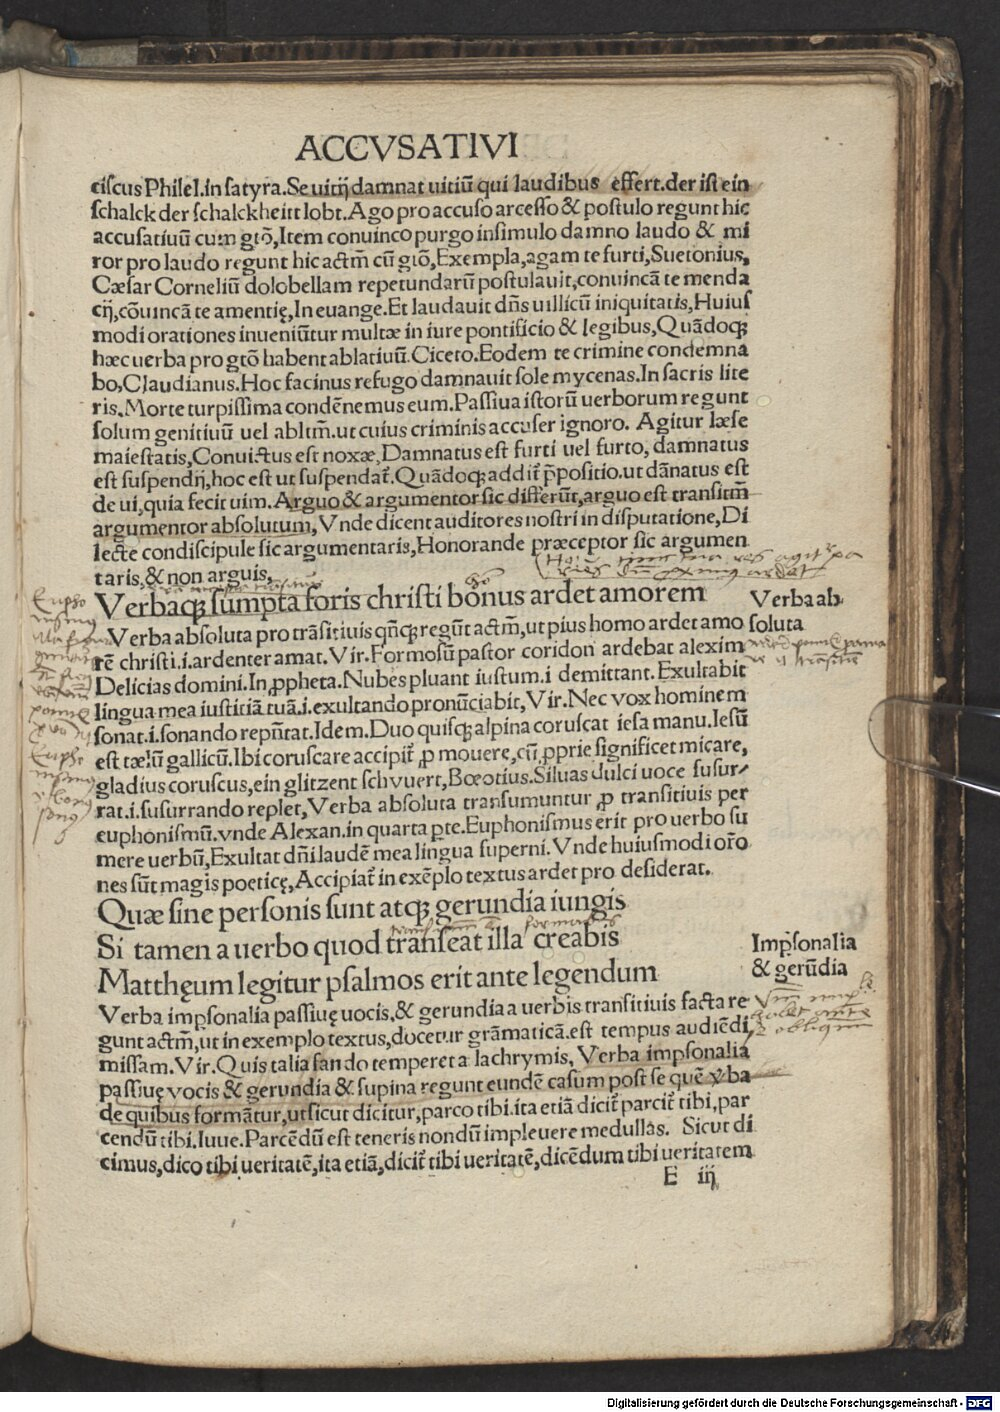 ACCVSATIVI
ciscus Philel.in satyra.Se uitij damnat uitiũ qui laudibus effert.der ist ein
schalck der schalckheitt lobt.Ago pro accuso arcesso & postulo regunt hic
accusatiuũ cum gtõ,Item conuinco purgo insimulo damno laudo & mi
ror pro laudo regunt hic actm̃ cũ gtõ,Exempla,agam te furti,Suetonius,
Cæsar Corneliũ dolobellam repetundarũ postulauit,conuincã te menda
cij,cõuincã te amentię,In euange.Et laudauit dñs uillicũ iniquitatis,Huius
modi orationes inueniũtur multæ in iure pontificio & legibus,Quãdoqꝫ
hæc uerba pro gtõ habent ablatiuũ.Cicero.Eodem te crimine condemna
bo,Claudianus.Hoc facinus refugo damnauit sole mycenas.In sacris lite
ris.Morte turpissima condẽnemus eum.Passiua istorũ uerborum regunt
solum genitiuũ uel abltm̃.ut cuius criminis accuser ignoro. Agitur læse
maiestatis,Conuictus est noxæ,Damnatus est furti uel furto, damnatus
est suspendij,hoc est ut suspendat̃.Quãdoqꝫ addit̃ p̃positio.ut dãnatus est
de ui,quia fecit uim.Arguo & argumentor sic differũt,arguo est transitm̃
argumentor absolutum,Vnde dicent auditores nostri in disputatione,Di
lecte condiscipule sic argumentaris,Honorande præceptor sic argumen
taris,& non arguis,
Verbaqꝫ sumpta foris christi bonus ardet amorem
Verba ab
soluta
Verba absoluta pro trãsitiuis qñqꝫ regũt actm̃,ut pius homo ardet amo
rẽ christi.i.ardenter amat.Vir.Formosũ pastor coridon ardebat alexim
Delicias domini.In ꝓpheta.Nubes pluant iustum.i demittant.Exultabit
lingua mea iustitiã tuã.i.exultando pronũciabit,Vir.Nec vox hominem
sonat.i.sonando rep̃ñtat.Idem.Duo quisqꝫ alpina coruscat iesa manu.Iesũ
est tælũ gallicũ.Ibi coruscare accipit̃ ꝓ mouere,cũ ꝓprie significet micare,
gladius coruscus,ein glitzent schvuert,Bœotius.Siluas dulci uoce susur/
rat.i.susurrando replet,Verba absoluta transumuntur ꝓ transitiuis per
euphonismũ.vnde Alexan.in quarta pte.Euphonismus erit pro uerbo su
mere uerbũ,Exultat dñi laudẽ mea lingua superni.Vnde huiusmodi orõ
nes sũt magis poeticę,Accipiat̃ in exẽplo textus ardet pro desiderat.
Quæ sine personis sunt atqꝫ gerundia iungis
Si tamen a uerbo quod transeat illa creabis
Matthęum legitur psalmos erit ante legendum
Imp̱sonalia
& gerũdia
Verba imp̱sonalia passiuę uocis,& gerundia a uerbis transitiuis facta re
gunt actm̃,ut in exemplo textus,docetur grãmaticã.est tempus audiẽdi
missam.Vir.Quis talia fando temperet a lachrymis, Verba imp̱sonalia
passiuę vocis & gerundia & supina regunt eundẽ casum post se quẽ v̾ba
de quibus formãtur,ut sicut dicitur,parco tibi.ita etiã dicit̃ parcit̃ tibi,par
cendũ tibi.Iuue.Parcẽdũ est teneris nondũ impleuere medullas. Sicut di
cimus,dico tibi ueritatẽ,ita etiã,dicit̃ tibi ueritatẽ,dicẽdum tibi ueritatem
E iij
Digitalisierung gefördert durch die Deutsche Forschungsgemeinschaft - DFG